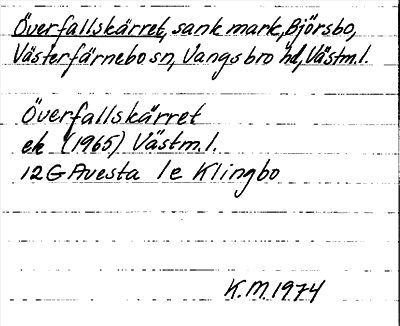 Överfallskärret, sank mark, Björsbo,
Västerfärnebo sn, Vangsbro hd, Västm.l.
Överfallskärret
ek (1965) Västm.l.
12G Avesta 1e Klingbo
K.M. 1974